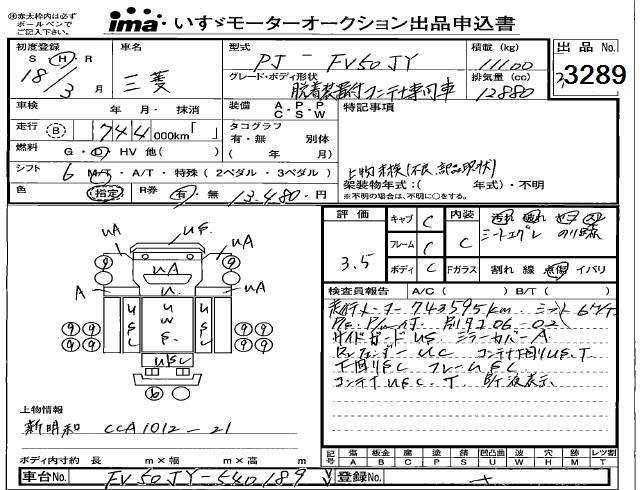 ※赤太枠内は必ず
ボールペンで
ご記入下さい。
ima いすゞモーターオークション出品申込書
初度登録 車名 型式 積載 (kg) 出品 No.
S H R 18/3 月 三菱 PJ-FV50JY 11100
グレード・ボディ形状 排気量 (cc)
脱着装置付コンテナ専用車 12880
3289
車検 年・月・抹消 装備 A.P.P C.S.W 特記事項
走行 B 744 000km「 」 タコグラフ
有・無 別体
燃料 G・D・HV 他( ) ( 年 / )
シフト 6 M/T・A/T・特殊 (2ペダル・3ペダル)
上物未検(不良、記録現状)
架装物年式:( 年式)・不明
※不明の場合は、不明に○をする。
色 指定 R券 有・無 13,480-円
評価 3.5 キャブ C 内装 C
シートエグレ のり跡
フレーム C
ボディ C Fガラス 割れ 線 点傷 イバリ
検査員報告 A/C ( ) B/T ( )
走行メーター 743595km シフト 6M/T
サイドガード UE ミラーカバー A
Rフェンダー UC コンテナ下回りUE.T
下回りEC フレームEC
UE
UA UA
UA UA
A U. A
9 9
UWE
UEC
6
上物情報
新明和 CCA1012-21
ボディ内寸約 長 m×幅 m×高 m
記号 傷 A 板金 B 腐 C 塗 P 錆 S 凹凸 U 波 W 穴 H 跡 M レツ割 T
車台No. FV50JY-540189 登録No.